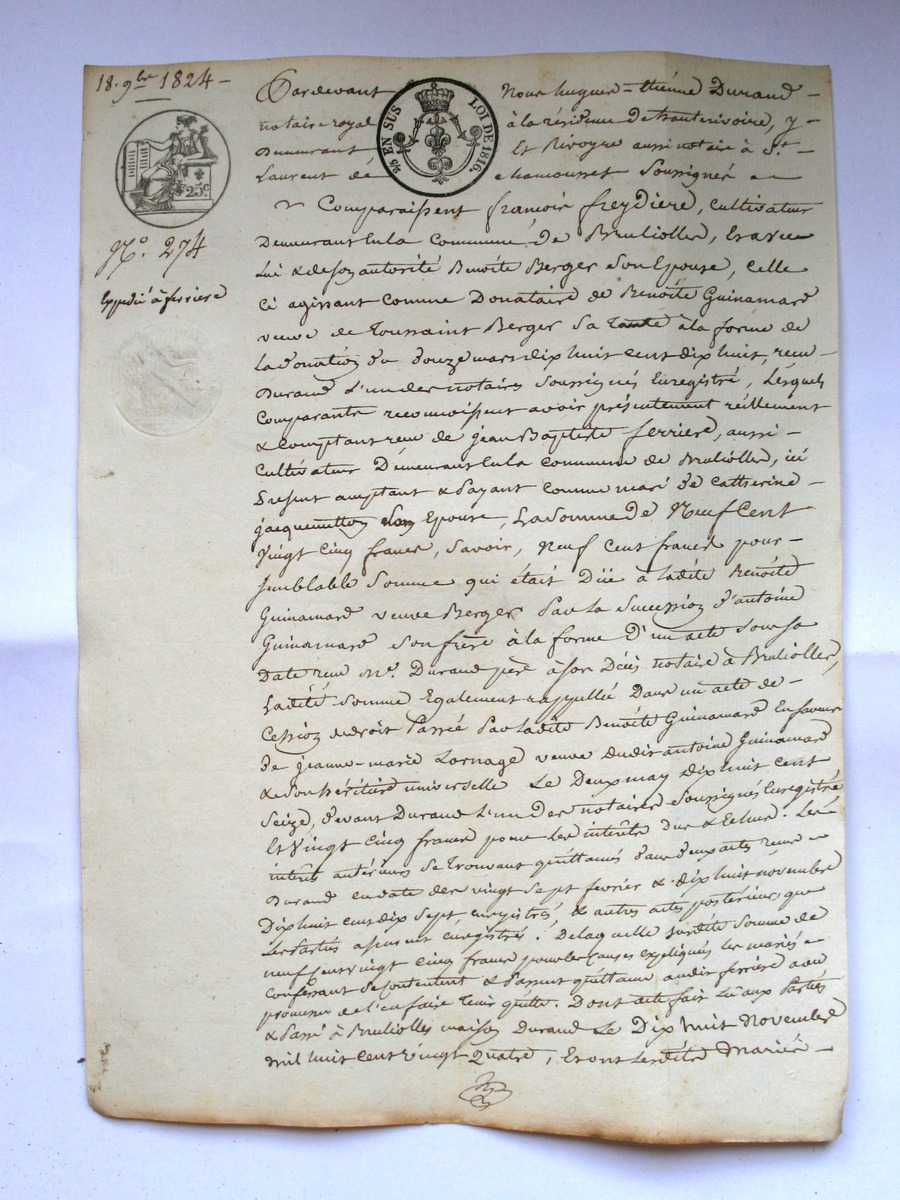 18. 9bre 1824 -
Pardevant Nous hugues-thiénne Durand -
notaire royal à la résidence de hauterivoire, y -
Demeurant Et Rivoyre aussi notaire à St. -
Laurent de chamousset Soussignés
2/5 EN SUS LOI DE 1816.
25c.
N.o 274
Expedié à ferriere
Comparaissent françois freydiere, cultivateur
Demeurant En la Commune de Brulioller, Et avec
Lui & de son autorité Benoîte Berger Son Epouse, celle
ci agissant comme Donataire de Benoîte Guinamard
veuve de Toussaint Berger Sa tante à la forme de
La donation du douze mars dix huit cent dix huit, recu
Durand L'un des notaires Soussignés Enregistré, Lesquels
Comparants reconnoissent avoir présentement réellement
& comptant recu de jean Baptiste ferriere, aussi -
cultivateur Demeurant En la commune de Brulioller, ici
Present acceptant & Payant comme mari de Catherine -
jacquemetton Son Epouse, La Somme de Neuf Cent
Vingt Cinq francs, Savoir, Neuf Cent francs pour -
Semblable Somme qui était Düe à Ladite Benoîte
Guinamard veuve Berger Par la Succession d'antoine
Guinamard Son frère à la forme d'un acte Sous Sa
Date recu Me. Durand père à son Décès notaire à Brulioller,
Ladite Somme Egalement rappellée Dans un acte de -
Cession de droit Passé Par Ladite Benoîte Guinamard En faveur
de jeanne-marie Lornage veuve dudit antoine Guinamard
& Son héritière universelle Le Deux may dix huit cent
Seize, devant Durand L'un des notaires Soussignés Enregistré
Et Vingt Cinq francs pour les intérêts Dus & Echus. Les
intérêts antérieurs Se trouvant quittancés dans deux actes recus
Durand en date des vingt Sept fevrier & dix huit novembre
Dix huit cent dix Sept, enregistrés, & autres actes postérieurs que
Les Parties assurent enregistrés. De laquelle Susdite Somme de
neuf Cent vingt Cinq francs pour les causes expliqués les mariés
Confessant Se Contentent & Passent quittance audit ferriere avec
promesse de l'en faire tenir quitte. Dont acte fait Lu aux Parties
& Passé à Brulioller maison Durand Le Dix huit Novembre
mil huit Cent vingt Quatre, Et ont Lesdits Mariés -